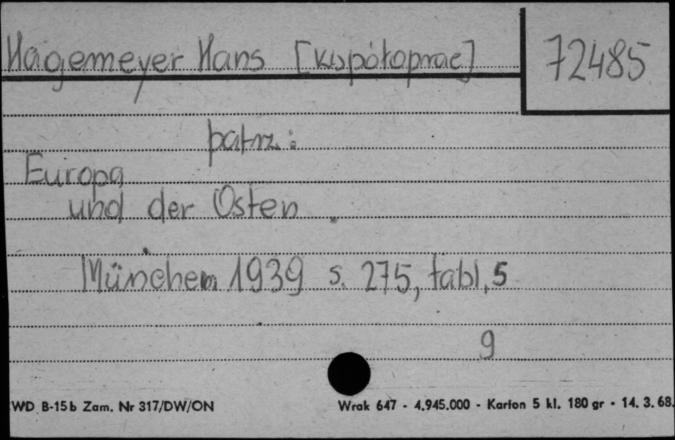 Hagemeyer Hans [współoprac]
72485
patrz:
Europa
und der Osten.
München 1939 s. 275, tabl, 5
9
WD B-15b Zam. Nr 317/DW/ON
Wrak 647 - 4.945.000 - Karton 5 kl. 180 gr - 14. 3. 68.